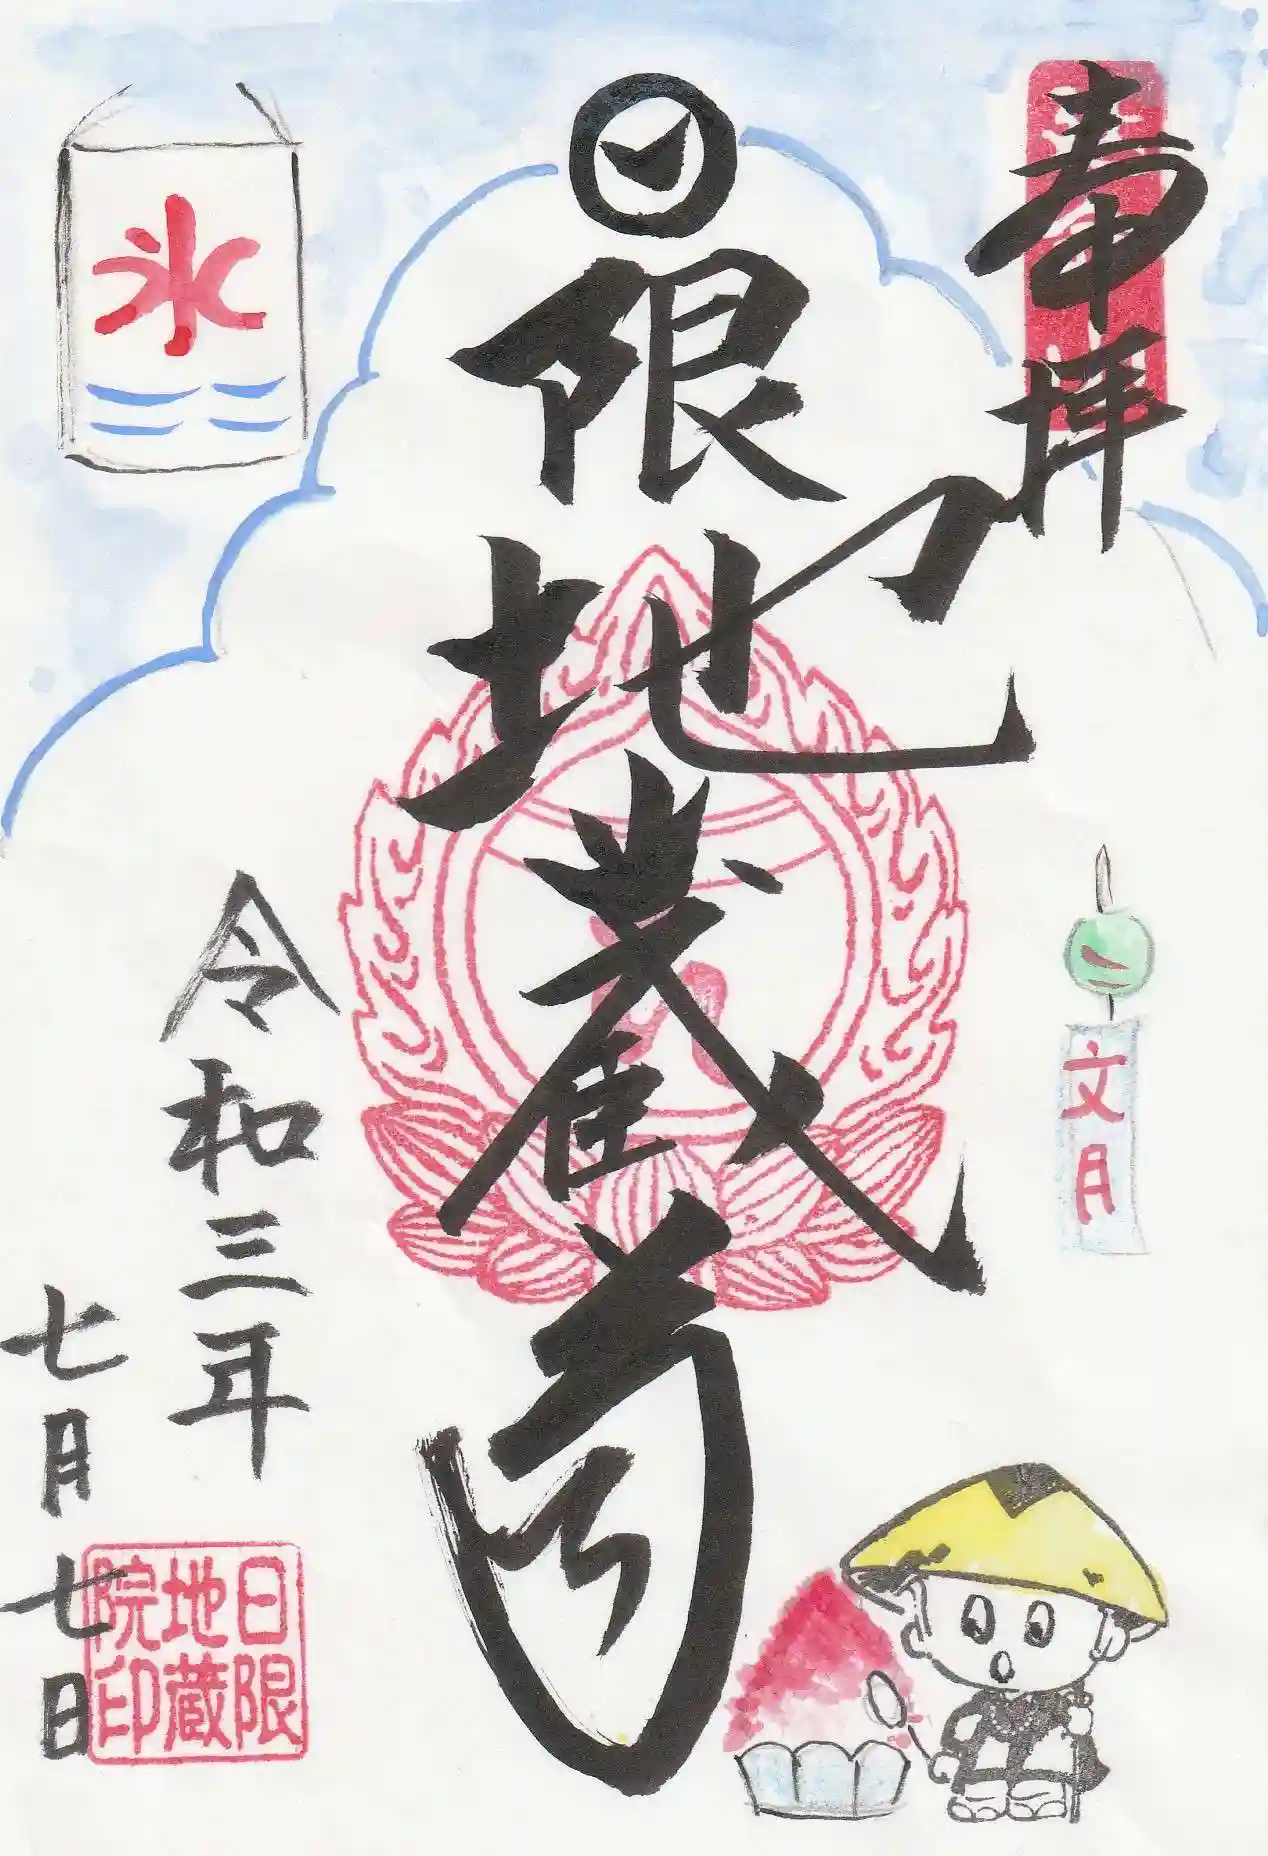 奉拝
日限地蔵尊
氷
文月
令和三年
七月七日
日限
地蔵
院印